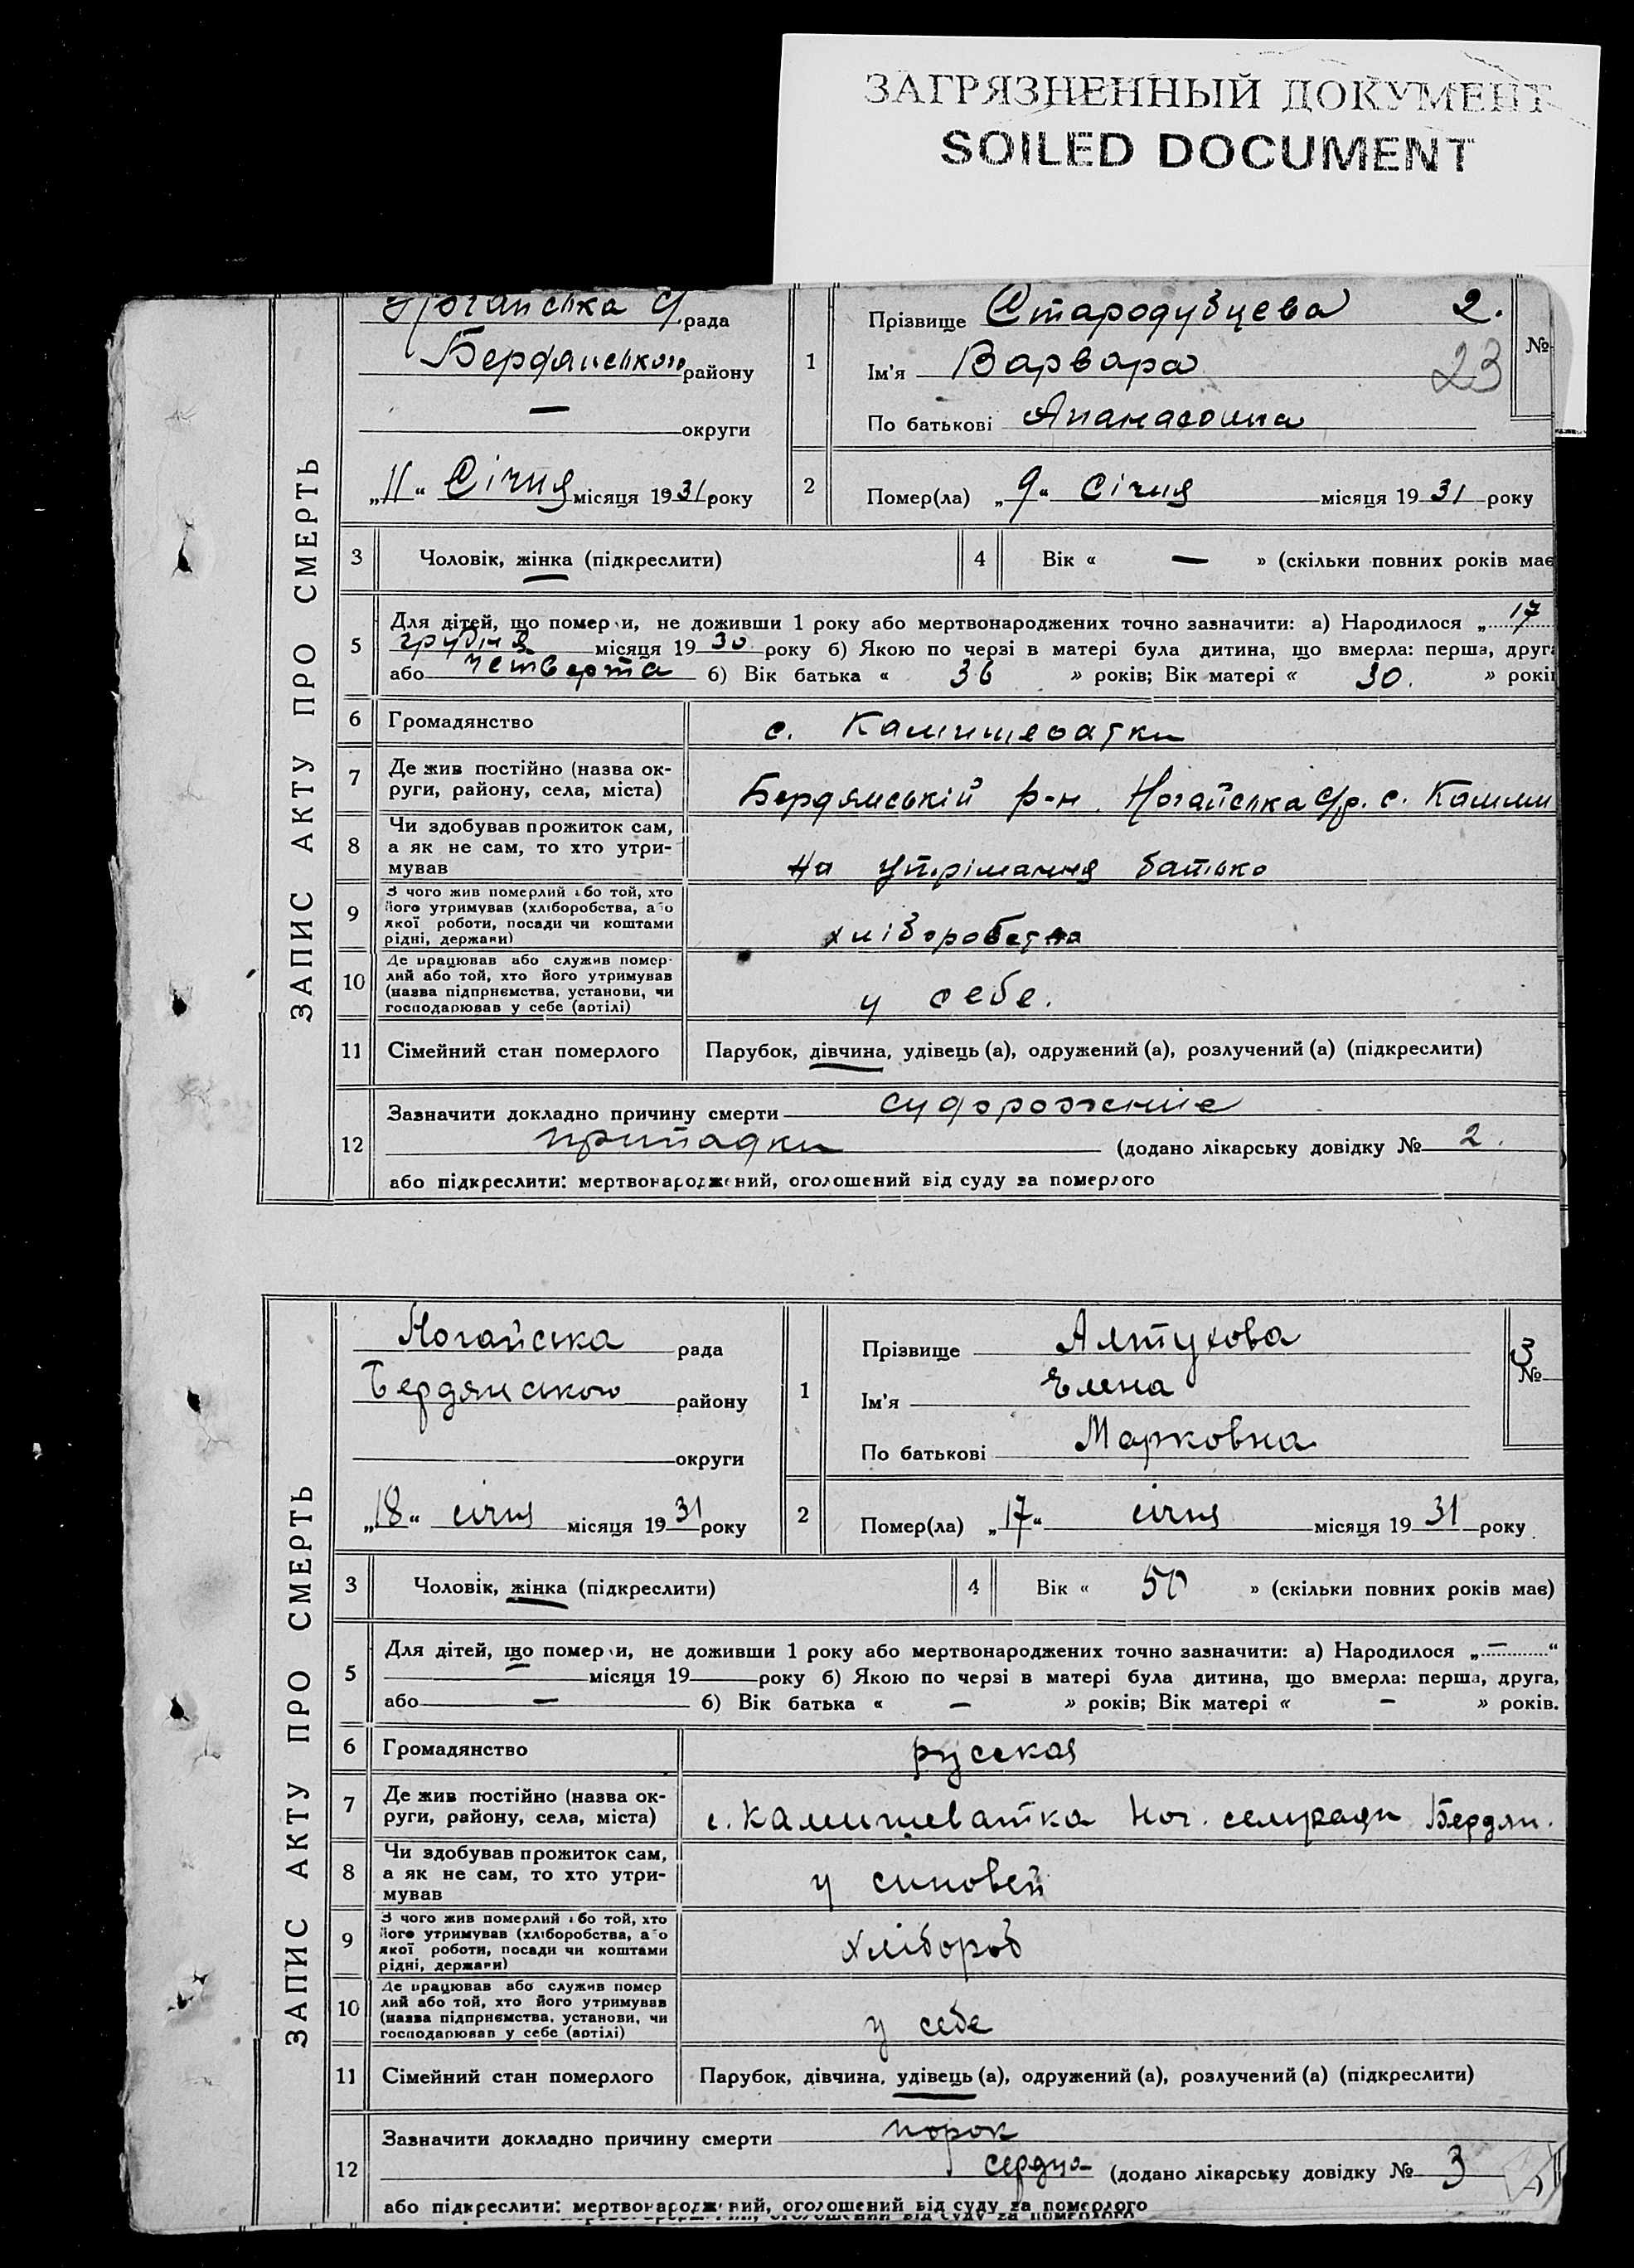 ЗАГРЯЗНЕННЫЙ ДОКУМЕНТ
SOILED DOCUMENT
ЗАПИС АКТУ ПРО СМЕРТЬ
Ногайська с/ рада
Бердянського району
— округи
„11“ Січня місяця 1931 року
1
Прізвище Стародубцева 2.
Ім'я Варвара 23
По батькові Апанасовна
№
2
Помер(ла) „9“ Січня місяця 1931 року
3 Чоловік, жінка (підкреслити)
4 Вік « — » (скільки повних років має
5 Для дітей, що померли, не доживши 1 року або мертвонароджених точно зазначити: а) Народилося „17
грудня місяця 1930 року б) Якою по черзі в матері була дитина, що вмерла: перша, друга
або четверта б) Вік батька « 36 » років; Вік матері « 30. » років
6 Громадянство с. Камишеватки
7 Де жив постійно (назва ок-
руги, району, села, міста) Бердянській р-н. Ногайська с/р. с. Камиш
8 Чи здобував прожиток сам,
а як не сам, то хто утри-
мував На утрімання батько
9 З чого жив померлий або той, хто
його утримував (хліборобства, або
якої роботи, посади чи коштами
рідні, держави) хліборобства
10 Де працював або служив помер-
лий або той, хто його утримував
(назва підприємства, установи, чи
господарював у себе (артілі) у себе.
11 Сімейний стан померлого Парубок, дівчина, удівець (а), одружений (а), розлучений (а) (підкреслити)
12 Зазначити докладно причину смерти судорожние
припадки (додано лікарську довідку № 2.
або підкреслити: мертвонароджений, оголошений від суду за померлого
ЗАПИС АКТУ ПРО СМЕРТЬ
Ногайська рада
Бердянського району
округи
„18“ січня місяця 1931 року
1
Прізвище Алтухова
Ім'я Елена
По батькові Марковна
3
№
2
Помер(ла) „17“ січня місяця 1931 року
3 Чоловік, жінка (підкреслити)
4 Вік « 50 » (скільки повних років має)
5 Для дітей, що померли, не доживши 1 року або мертвонароджених точно зазначити: а) Народилося „—“
— місяця 19 року б) Якою по черзі в матері була дитина, що вмерла: перша, друга,
або — б) Вік батька « — » років; Вік матері « — » років.
6 Громадянство русская
7 Де жив постійно (назва ок-
руги, району, села, міста) с. Камишеватка Ног. сельради Бердян.
8 Чи здобував прожиток сам,
а як не сам, то хто утри-
мував у синовей
9 З чого жив померлий або той, хто
його утримував (хліборобства, або
якої роботи, посади чи коштами
рідні, держави) хлібороб
10 Де працював або служив помер
лий або той, хто його утримував
(назва підприємства, установи, чи
господарював у себе (артілі) у себе
11 Сімейний стан померлого Парубок, дівчина, удівець (а), одружений (а), розлучений (а) (підкреслити)
12 Зазначити докладно причину смерти порок
сердца (додано лікарську довідку № 3
або підкреслити: мертвонароджений, оголошений від суду за померлого